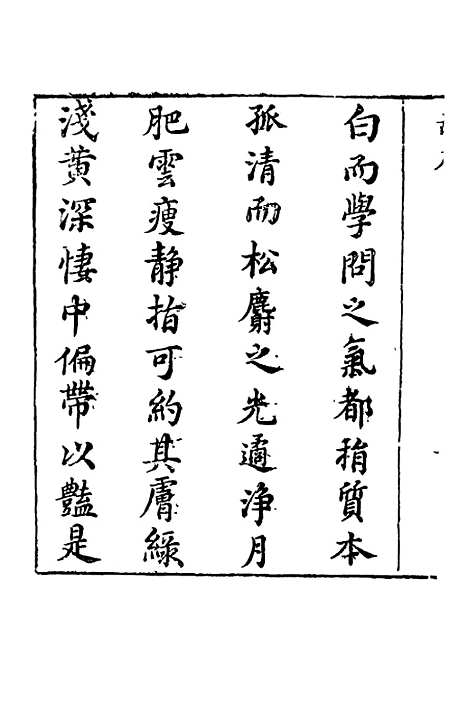 白而學問之氣都捐質本
孤清而松麝之光遹淨月
肥雲瘦静指可約其膚綠
淺黃深悽中偏帶以豔是